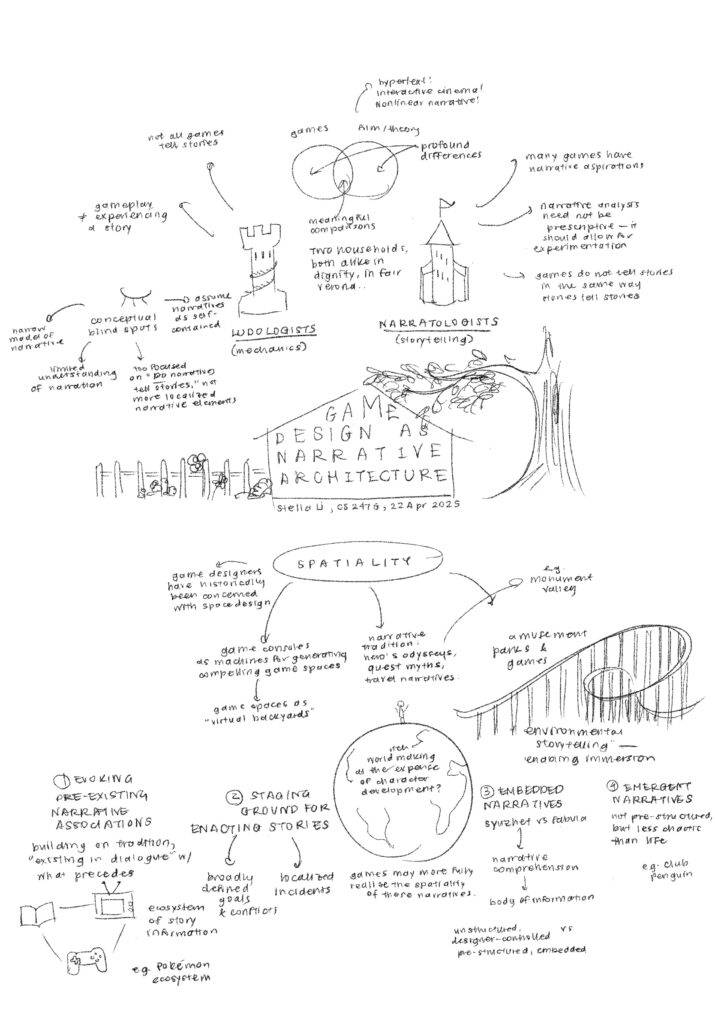 hypertext!
interactive cinema!
Nonlinear narrative!
games
film/theory
profound
differences
meaningful
comparisons
not all games
tell stories
gameplay
≠ experiencing
a story
many games have
narrative aspirations
narrative analysis
need not be
prescriptive — it
should allow for
experimentation
games do not tell stories
in the same way
stories tell stories
TWO households,
both alike in
dignity, in fair
verona...
LUDOLOGISTS
(mechanics)
NARRATOLOGISTS
(storytelling)
conceptual
blind spots
assume
narratives
as self-
contained
narrow
model of
narrative
limited
understanding
of narration
too focused
on "DO narratives
tell stories," not
more localized
narrative elements
GAME
DESIGN AS
NARRATIVE
ARCHITECTURE
Stella Li, CS 247G, 22 Apr 2025
SPATIALITY
game designers
have historically
been concerned
with space design
game consoles
as machines for generating
compelling game spaces
game spaces as
"virtual backyards"
narrative
tradition:
hero's odysseys,
quest myths,
travel narratives.
e.g.
monument
valley
amusement
parks &
games
"environmental
storytelling" —
enabling immersion
world making
as the expence
of character
development?
games may more fully
realize the spatiality
of these narratives.
① EVOKING
PRE-EXISTING
NARRATIVE
ASSOCIATIONS
building on tradition,
"existing in dialogue" w/
what precedes
ecosystem
of story
information
e.g. Pokémon
ecosystem
② STAGING
GROUND FOR
ENACTING STORIES
broadly
defined
goals
& conflicts
localized
incidents
③ EMBEDDED
NARRATIVES
syuzhet vs fabula
narrative
comprehension
body of information
unstructured,
designer-controlled
vs
pre-structured, embedded
④ EMERGENT
NARRATIVES
not pre-structured,
but less chaotic
than life
e.g. club
penguin